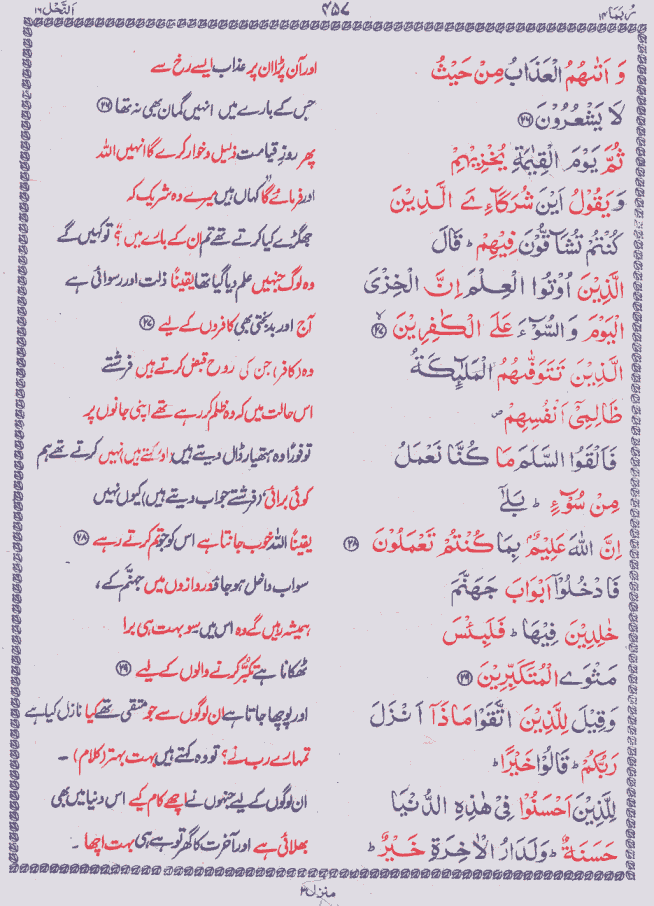 رُبَمَا ۱۴
۴۵۷
اَلنَّحْل ۱۶
وَ اَتٰىهُمُ الْعَذَابُ مِنْ حَيْثُ
اور آن پڑا ان پر عذاب ایسے رخ سے
لَا يَشْعُرُوْنَ ﴿۲۶﴾
جس کے بارے میں انہیں گمان بھی نہ تھا ﴿۲۶﴾
ثُمَّ يَوْمَ الْقِيٰمَةِ يُخْزِيْهِمْ
پھر روزِ قیامت ذلیل و خوار کرے گا انہیں اللہ
وَيَقُوْلُ اَيْنَ شُرَكَآءِ يَ الَّذِيْنَ
اور فرمائے گا کہاں ہیں میرے وہ شریک کہ
كُنْتُمْ تُشَآقُّوْنَ فِيْهِمْ ؕ قَالَ
جھگڑے کیا کرتے تھے تم ان کے بارے میں ؟ تو کہیں گے
الَّذِيْنَ اُوْتُوا الْعِلْمَ اِنَّ الْخِزْيَ
وہ لوگ جنہیں علم دیا گیا تھا یقیناً ذلت اور رسوائی ہے
الْيَوْمَ وَالسُّوْٓءَ عَلَي الْكٰفِرِيْنَ ﴿۲۷﴾
آج اور بدبختی بھی کافروں کے لیے ﴿۲۷﴾
الَّذِيْنَ تَتَوَفّٰىهُمُ الْمَلٰٓئِكَةُ
وہ (کافر) جن کی روح قبض کرتے ہیں فرشتے
ظَالِمِيْٓ اَنْفُسِهِمْ ۪
اس حالت میں کہ وہ ظلم کر رہے تھے اپنی جانوں پر
فَاَلْقَوُا السَّلَمَ مَا كُنَّا نَعْمَلُ
تو فوراً وہ ہتھیار ڈال دیتے ہیں (اور کہتے ہیں) نہیں کرتے تھے ہم
مِنْ سُوْٓءٍ ؕ بَلٰٓي
کوئی برائی (فرشتے جواب دیتے ہیں) کیوں نہیں
اِنَّ اللّٰهَ عَلِيْمٌۢ بِمَا كُنْتُمْ تَعْمَلُوْنَ ﴿۲۸﴾
یقیناً اللہ خوب جانتا ہے اس کو جو تم کرتے رہے ﴿۲۸﴾
فَادْخُلُوْٓا اَبْوَابَ جَهَنَّمَ
سو اب داخل ہو جاؤ دروازوں میں جہنّم کے ،
خٰلِدِيْنَ فِيْهَا ؕ فَلَبِئْسَ
ہمیشہ رہیں گے وہ اس میں۔ سو بہت ہی برا
مَثْوَي الْمُتَكَبِّرِيْنَ ﴿۲۹﴾
ٹھکانا ہے تکبّر کرنے والوں کے لیے ﴿۲۹﴾
وَقِيْلَ لِلَّذِيْنَ اتَّقَوْا مَاذَآ اَنْزَلَ
اور پوچھا جاتا ہے ان لوگوں سے جو متقی تھے کیا نازل کیا ہے
رَبُّكُمْ ؕ قَالُوْا خَيْرًا ؕ
تمہارے رب نے ؟ تو وہ کہتے ہیں بہت بہتر (کلام) ۔
لِلَّذِيْنَ اَحْسَنُوْا فِيْ هٰذِهِ الدُّنْيَا
ان لوگوں کے لیے جنہوں نے اچھے کام کیے اس دنیا میں بھی
حَسَنَةٌ ؕ وَلَدَارُ الْاٰخِرَةِ خَيْرٌ ؕ
بھلائی ہے اور آخرت کا گھر تو ہے ہی بہت اچھا ۔
منزل ۳